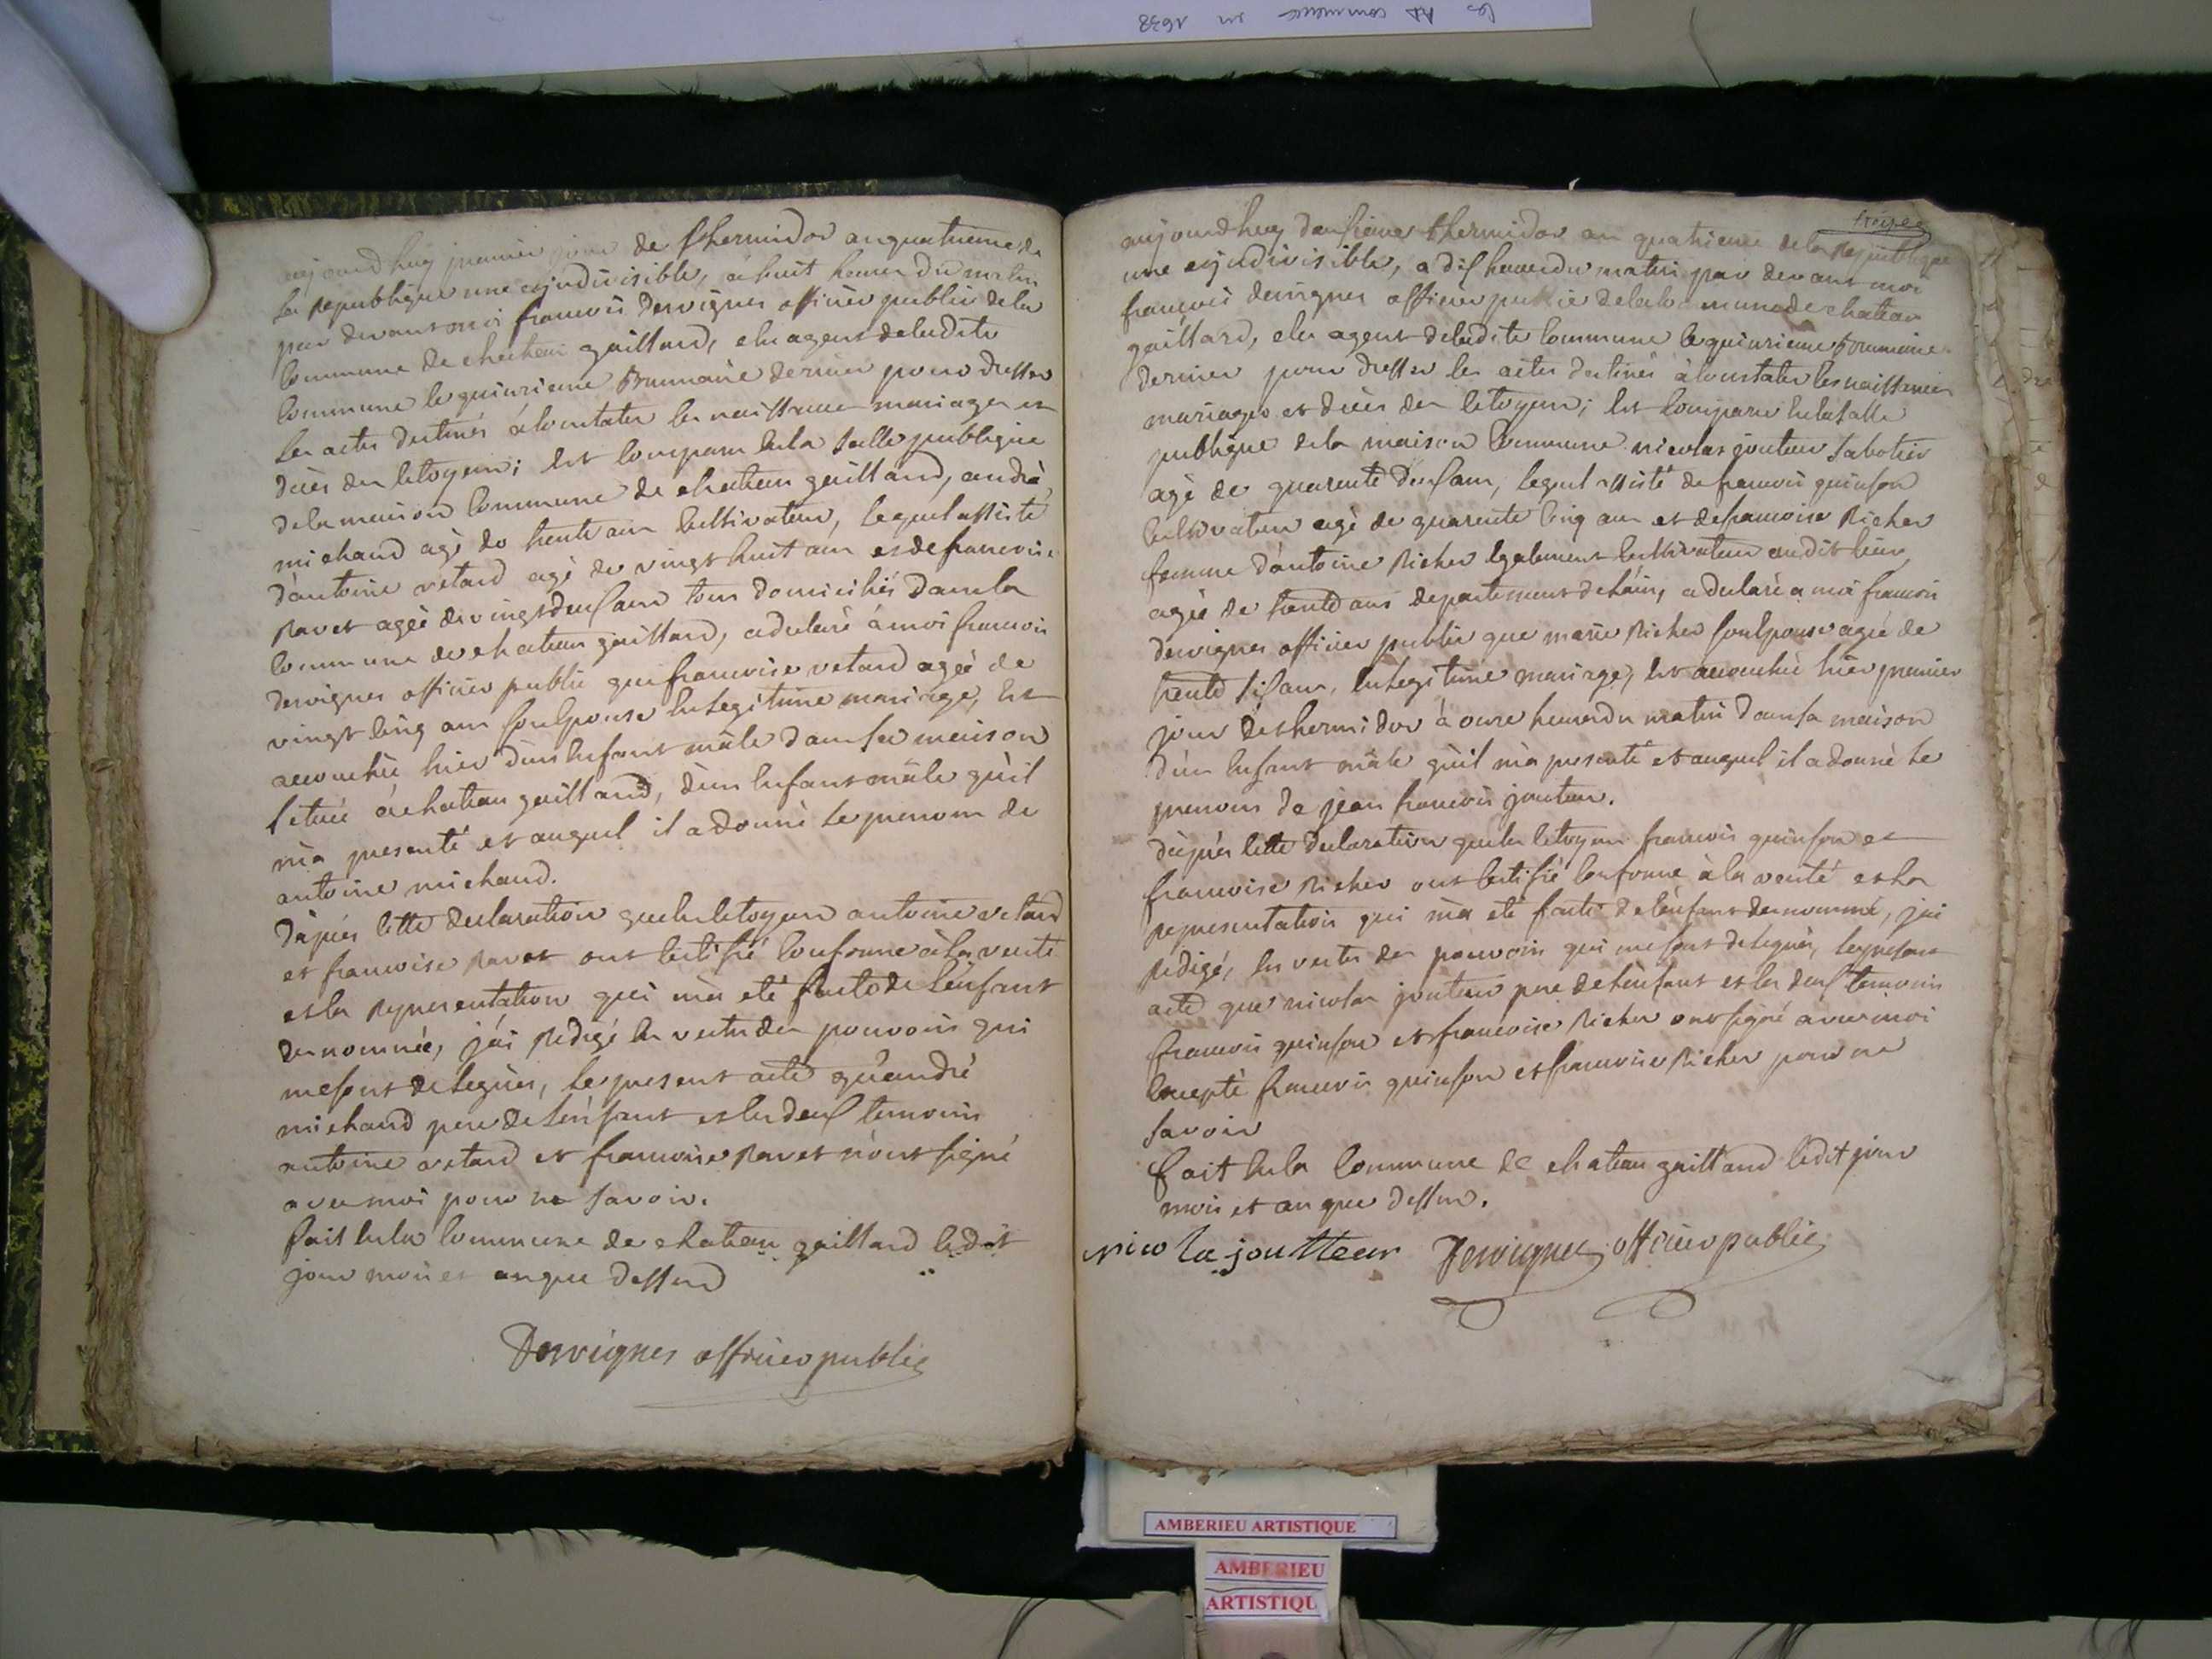 les AD commence en 1638
aujourdhuy premier jour de thermidor an quatrieme de
la Republique une et jndivisible, à huit heures du matin
par devant moi francois desvignes officier public de la
Commune de chateau gaillard, elu agent de ladite
Commune le quinzieme Brumaire dernier pour dresser
les actes destinés à Constater les naissances mariages et
décès des Citoyens; Est Comparu En la Salle publique
de la maison Commune de chateau gaillard, andré
michaud agé de trente ans Cultivateur, lequel assisté
d'antoine vetard agé de vingt huit ans et de francoise
Ravet agée de vingt deux ans tous domiciliés dans la
Commune de chateau gaillard, a declaré à moi francois
desvignes officier public que francoise vetard agée de
vingt Cinq ans son Epouse En Legitime mariage, Est
accouchée hier d'un Enfant mâle dans sa maison
Située à chateau gaillard, d'un Enfant mâle qu'il
m'a presenté et auquel il a donné le prenom de
antoine michaud.
D'après Cette declaration que les Citoyens antoine vetard
et francoise Ravet ont Certifié Conforme à la verité
et la Representation qui m'a eté faite de L'enfant
denommé, j'ai Redigé En vertu des pouvoirs qui
me sont delegués, le present acte qu'andré
michaud pere de L'enfant et les deux temoins
antoine vetard et francoise Ravet n'ont signé
avec moi pour ne Savoir.
fait En la Commune de chateau gaillard ledit
jour mois et an que dessus
Desvignes officier public
treize
aujourdhuy deuxieme thermidor an quatrieme de la Republique
une et jndivisible, a dix heures du matin par devant moi
francois desvignes officier public de la Commune de chateau
gaillard, elu agent de ladite Commune le quinzieme Brumaire
dernier pour dresser les actes destinés à Constater les naissances
mariages et décès des Citoyens; Est Comparu En la Salle
publique de la maison Commune nicolas jouteur Sabotier
agé de quarente deux ans, lequel assisté de francois quinson
Cultivateur agé de quarente Cinq ans et de francoise Richer
femme d'antoine Richer Egalement Cultivateur audit lieu
agée de trente ans departement de L'ain, a declaré a moi francois
desvignes officier public que marie Richer son Epouse agée de
trente six ans, En Legitime mariage, Est accouchée hier premier
jour de thermidor à onze heures du matin dans sa maison
d'un Enfant mâle qu'il m'a presenté et auquel il a donné le
prenom de jean francois jouteur.
d'après Cette declaration que les Citoyens francois quinson et
francoise Richer ont Certifié Conforme à la verité et la
Representation qui m'a eté faite de L'enfant denommé, jai
Redigé, En vertu des pouvoirs qui me sont delegués, le present
acte que nicolas jouteur pere de L'enfant et les deux temoins
francois quinson et francoise Richer ont signé avec moi
Excepté francois quinson et francoise Richer pour ne
Savoir
fait En la Commune de chateau gaillard ledit jour
mois et an que dessus.
nicola joutteur Desvignes officier public
AMBERIEU ARTISTIQUE
AMBERIEU
ARTISTIQU